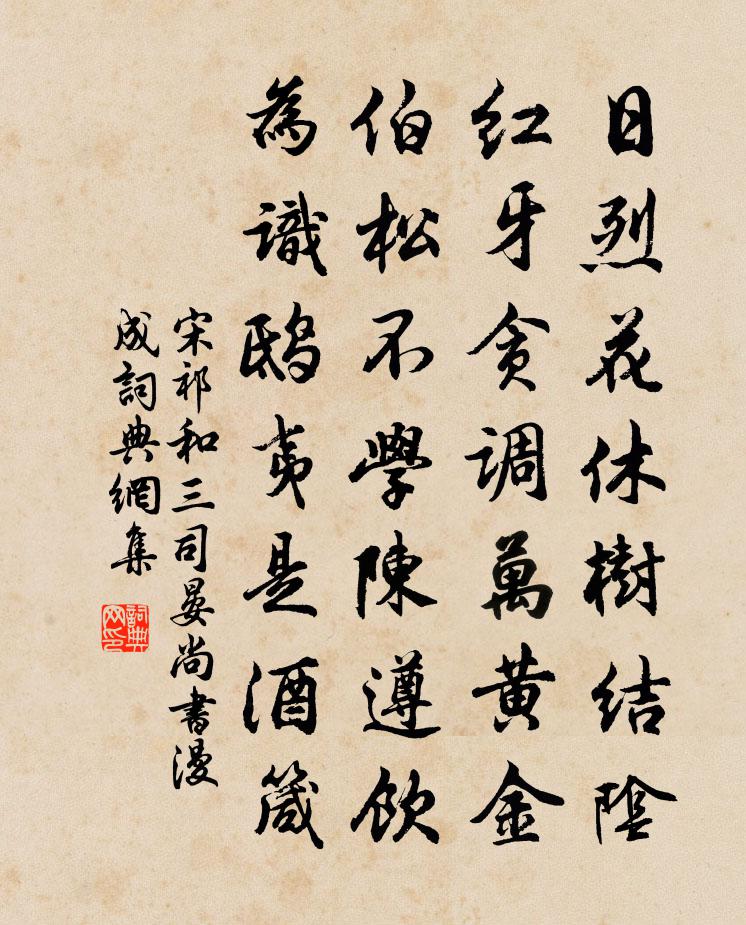 日烈花休樹結陰
紅牙貪調萬黃金
伯松不學陳遵飲
為識鴟夷是酒箴
宋祁和三司晏尚書漫
成詞典網集
詞典
网印